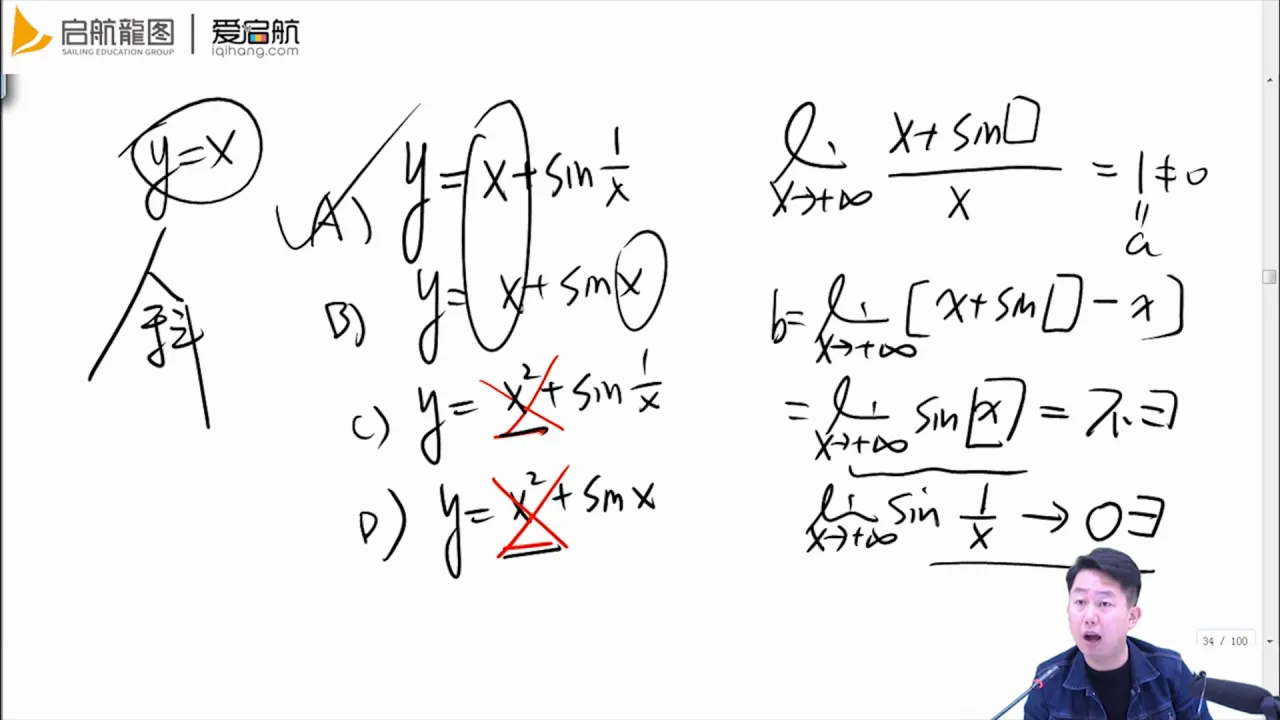 启航龍图
SAILING EDUCATION GROUP
爱启航
iqihang.com
y=x
斜
(A) y=x+sin 1/x
B) y=x+sin x
C) y=x²+sin 1/x
D) y=x²+sin x
lim x→+∞ (x+sin□)/x =1≠0
=
a
b=lim x→+∞ [x+sin□-x]
=lim x→+∞ sin x =不∃
lim x→+∞ sin 1/x →0∃
34 / 100